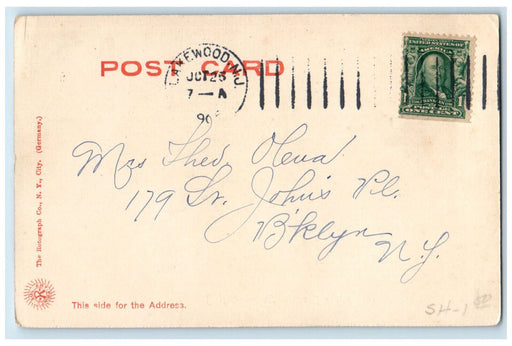 POST CARD
LAKEWOOD, N.J.
OCT 26
7 — A
190
UNITED STATES OF AMERICA
1
ONE CENT
Mrs Thed. Oleva
179 St. John's Pl.
B'klyn
N.Y.
The Rotograph Co., N. Y. City. (Germany.)
This side for the Address.
SH-1